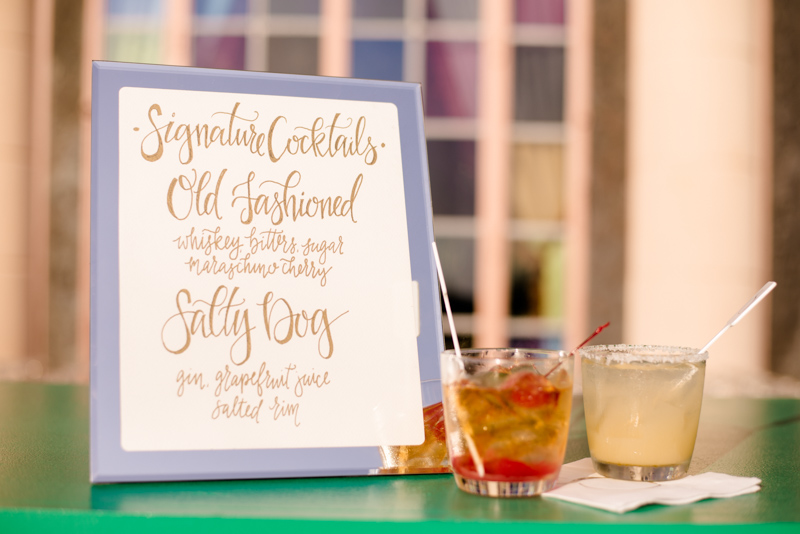 ·Signature Cocktails·
Old Fashioned
whiskey, bitters, sugar
maraschino cherry
Salty Dog
gin, grapefruit juice
salted rim